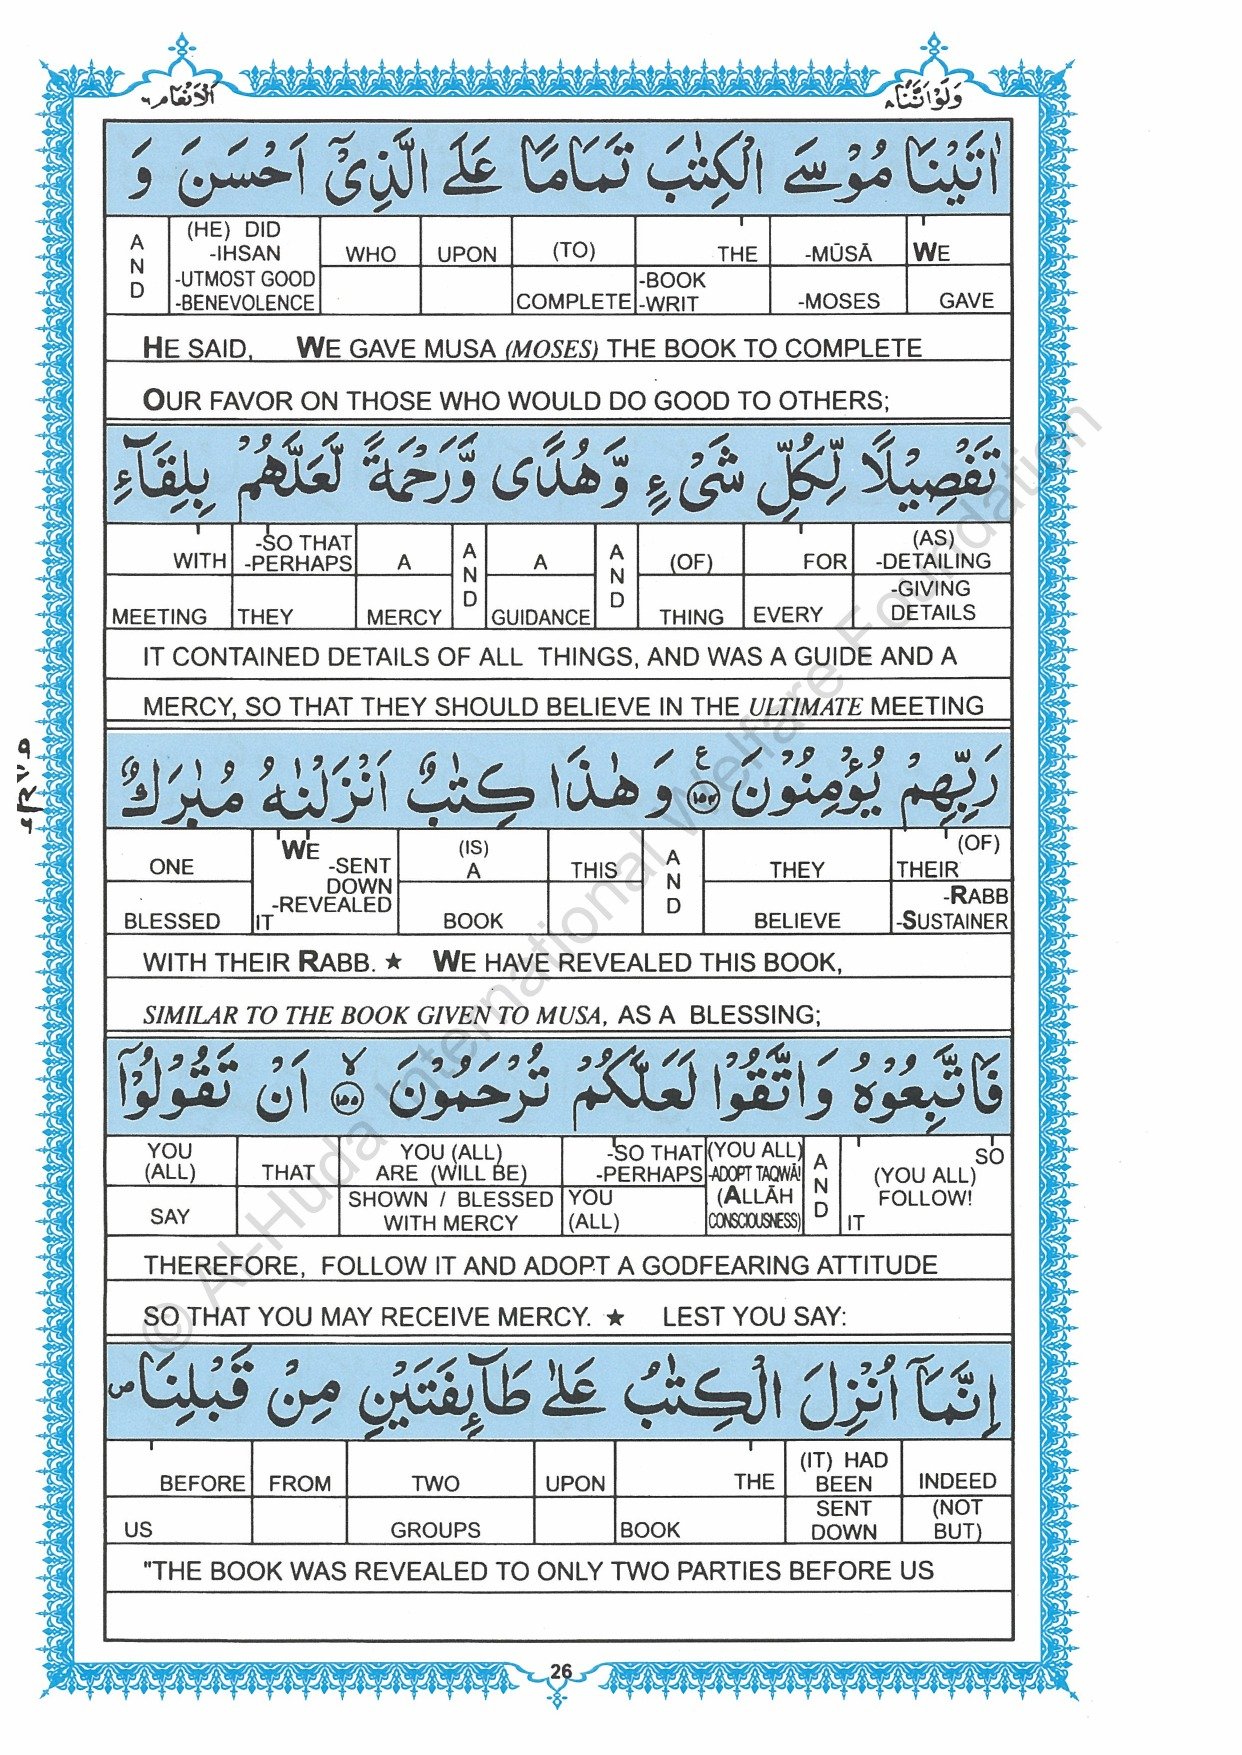 الانعام ٦
ولواننا ٨
اٰتَيْنَا مُوْسَى الْكِتٰبَ تَمَامًا عَلَى الَّذِيْٓ اَحْسَنَ وَ
AND | (HE) DID -IHSAN -UTMOST GOOD -BENEVOLENCE | WHO | UPON | (TO) COMPLETE | THE -BOOK -WRIT | -MŪSĀ -MOSES | WE GAVE
HE SAID, WE GAVE MUSA (MOSES) THE BOOK TO COMPLETE
OUR FAVOR ON THOSE WHO WOULD DO GOOD TO OTHERS;
تَفْصِيْلًا لِّكُلِّ شَیْءٍ وَّهُدًى وَّرَحْمَةً لَّعَلَّهُمْ بِلِقَآءِ
WITH MEETING | -SO THAT -PERHAPS THEY | A MERCY | AND | A GUIDANCE | AND | (OF) THING | FOR EVERY | (AS) -DETAILING -GIVING DETAILS
IT CONTAINED DETAILS OF ALL THINGS, AND WAS A GUIDE AND A
MERCY, SO THAT THEY SHOULD BELIEVE IN THE ULTIMATE MEETING
رَبِّهِمْ يُؤْمِنُوْنَ ع ١٥٤ وَ هٰذَا كِتٰبٌ اَنْزَلْنٰهُ مُبٰرَكٌ
ONE BLESSED | WE -SENT DOWN -REVEALED IT | (IS) A BOOK | THIS | AND | THEY BELIEVE | (OF) THEIR -RABB -SUSTAINER
WITH THEIR RABB. ★ WE HAVE REVEALED THIS BOOK,
SIMILAR TO THE BOOK GIVEN TO MUSA, AS A BLESSING;
فَاتَّبِعُوْهُ وَاتَّقُوْا لَعَلَّكُمْ تُرْحَمُوْنَ لا ١٥٥ اَنْ تَقُوْلُوْٓا
YOU (ALL) SAY | THAT | YOU (ALL) ARE (WILL BE) SHOWN / BLESSED WITH MERCY | -SO THAT -PERHAPS YOU (ALL) | (YOU ALL) -ADOPT TAQWĀ! (ALLĀH CONSCIOUSNESS) | AND | SO (YOU ALL) FOLLOW! IT
THEREFORE, FOLLOW IT AND ADOPT A GODFEARING ATTITUDE
SO THAT YOU MAY RECEIVE MERCY. ★ LEST YOU SAY:
اِنَّمَآ اُنْزِلَ الْكِتٰبُ عَلٰى طَآئِفَتَيْنِ مِنْ قَبْلِنَا ص
BEFORE US | FROM | TWO GROUPS | UPON | THE BOOK | (IT) HAD BEEN SENT DOWN | INDEED (NOT BUT)
"THE BOOK WAS REVEALED TO ONLY TWO PARTIES BEFORE US
26
© Al-Huda International Welfare Foundation